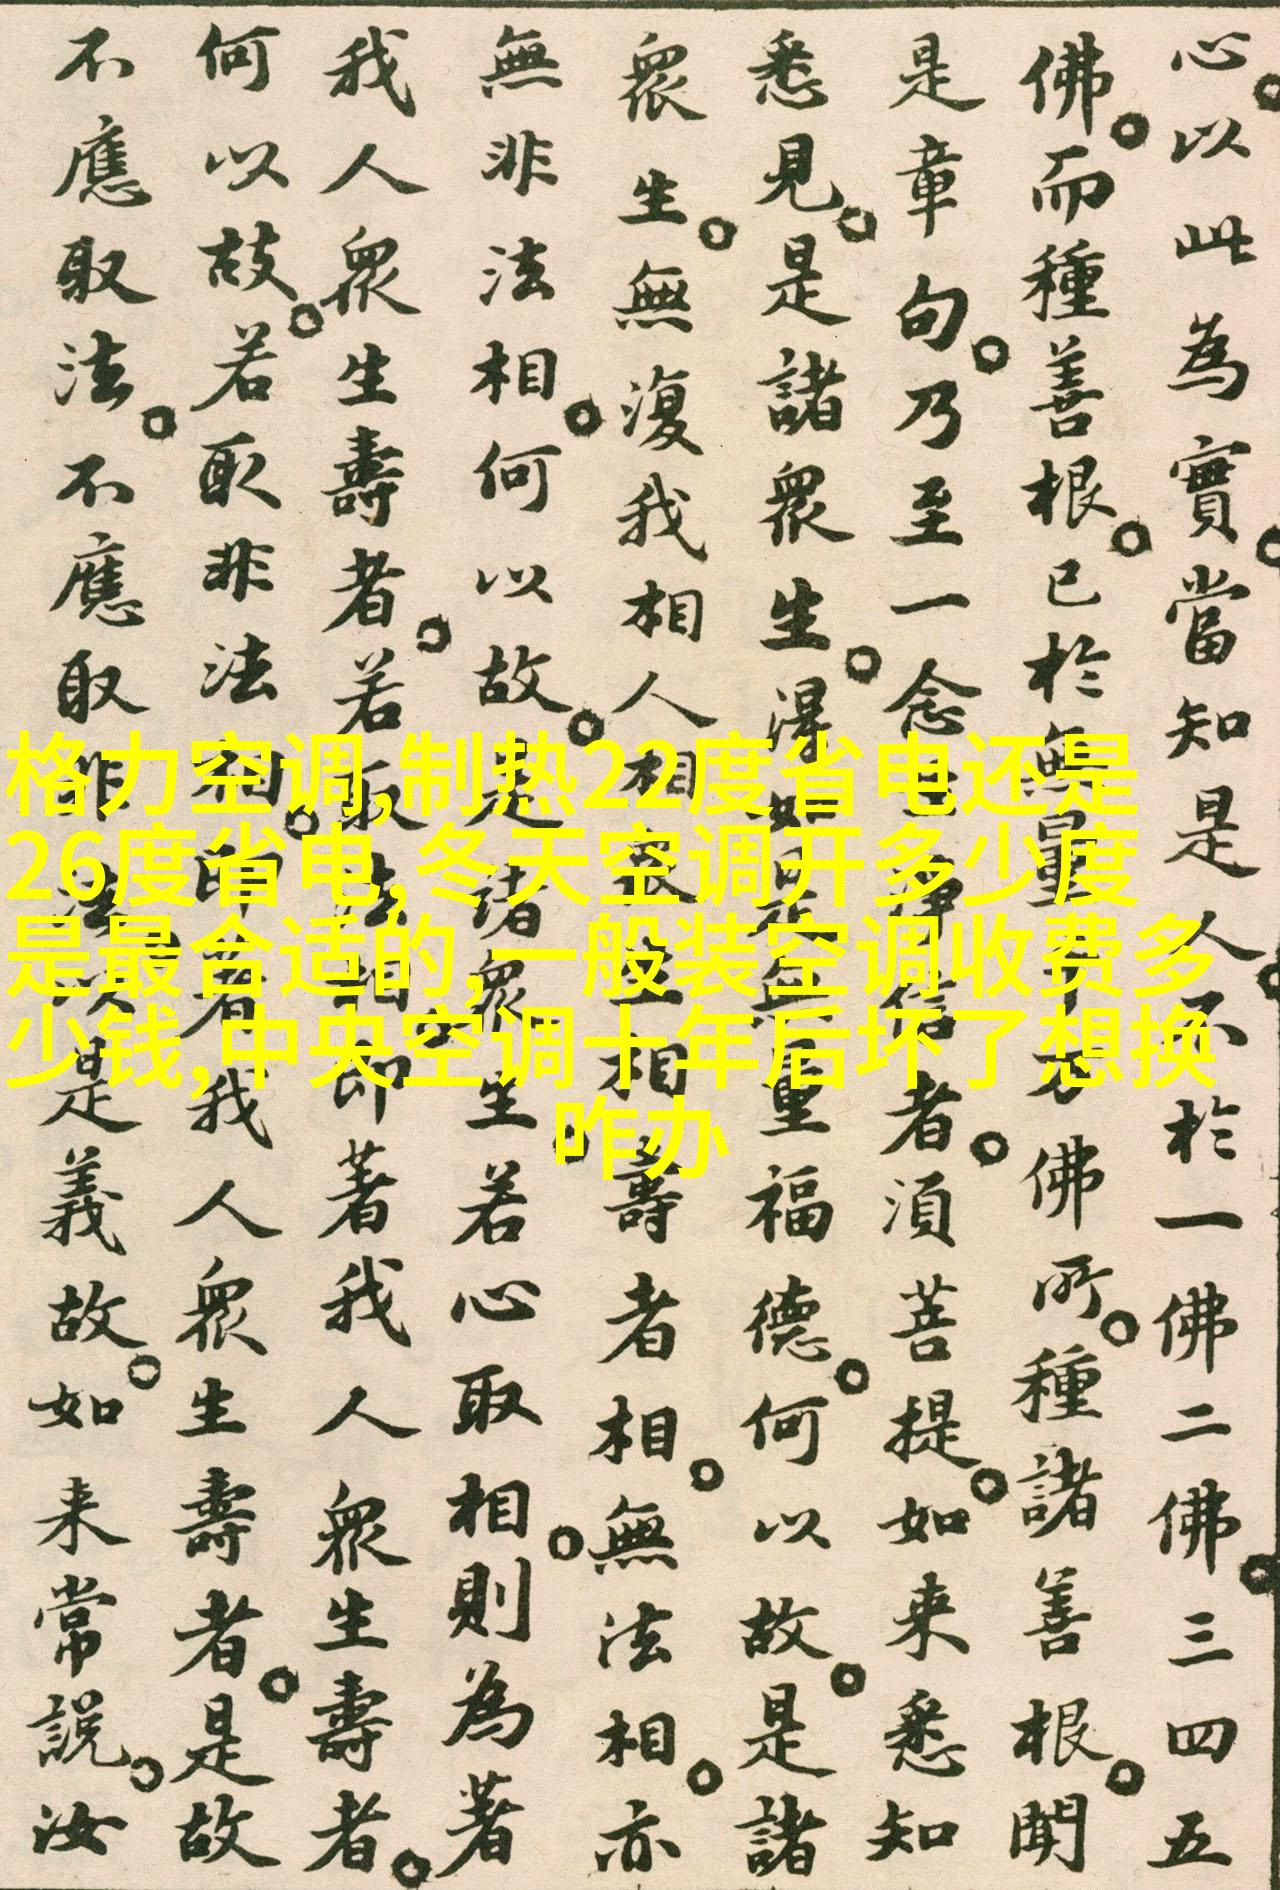 心。以此為實。當知是人。不於一佛二佛。三四五
佛。而種善根。已於無量千万佛所。種諸善根。聞
是章句。乃至一念生淨信者。須菩提。如来悉知
悉見。是諸衆生。得如是無量福德。何以故。是諸
衆生。無復我相人相衆生相壽者相。無法相。亦
無非法相。何以故。是諸衆生。若心取相。則為著
我人衆生壽者。若取法相。即著我人衆生壽者。
何以故。若取非法相。即著我人衆生壽者。是故
不應取法。不應取非法。以是義故。如来常說。汝
格力空调,制热22度省电还是
26度省电,冬天空调开多少度
是最合适的,一般装空调收费多
少钱,中央空调十年后坏了想换
咋办